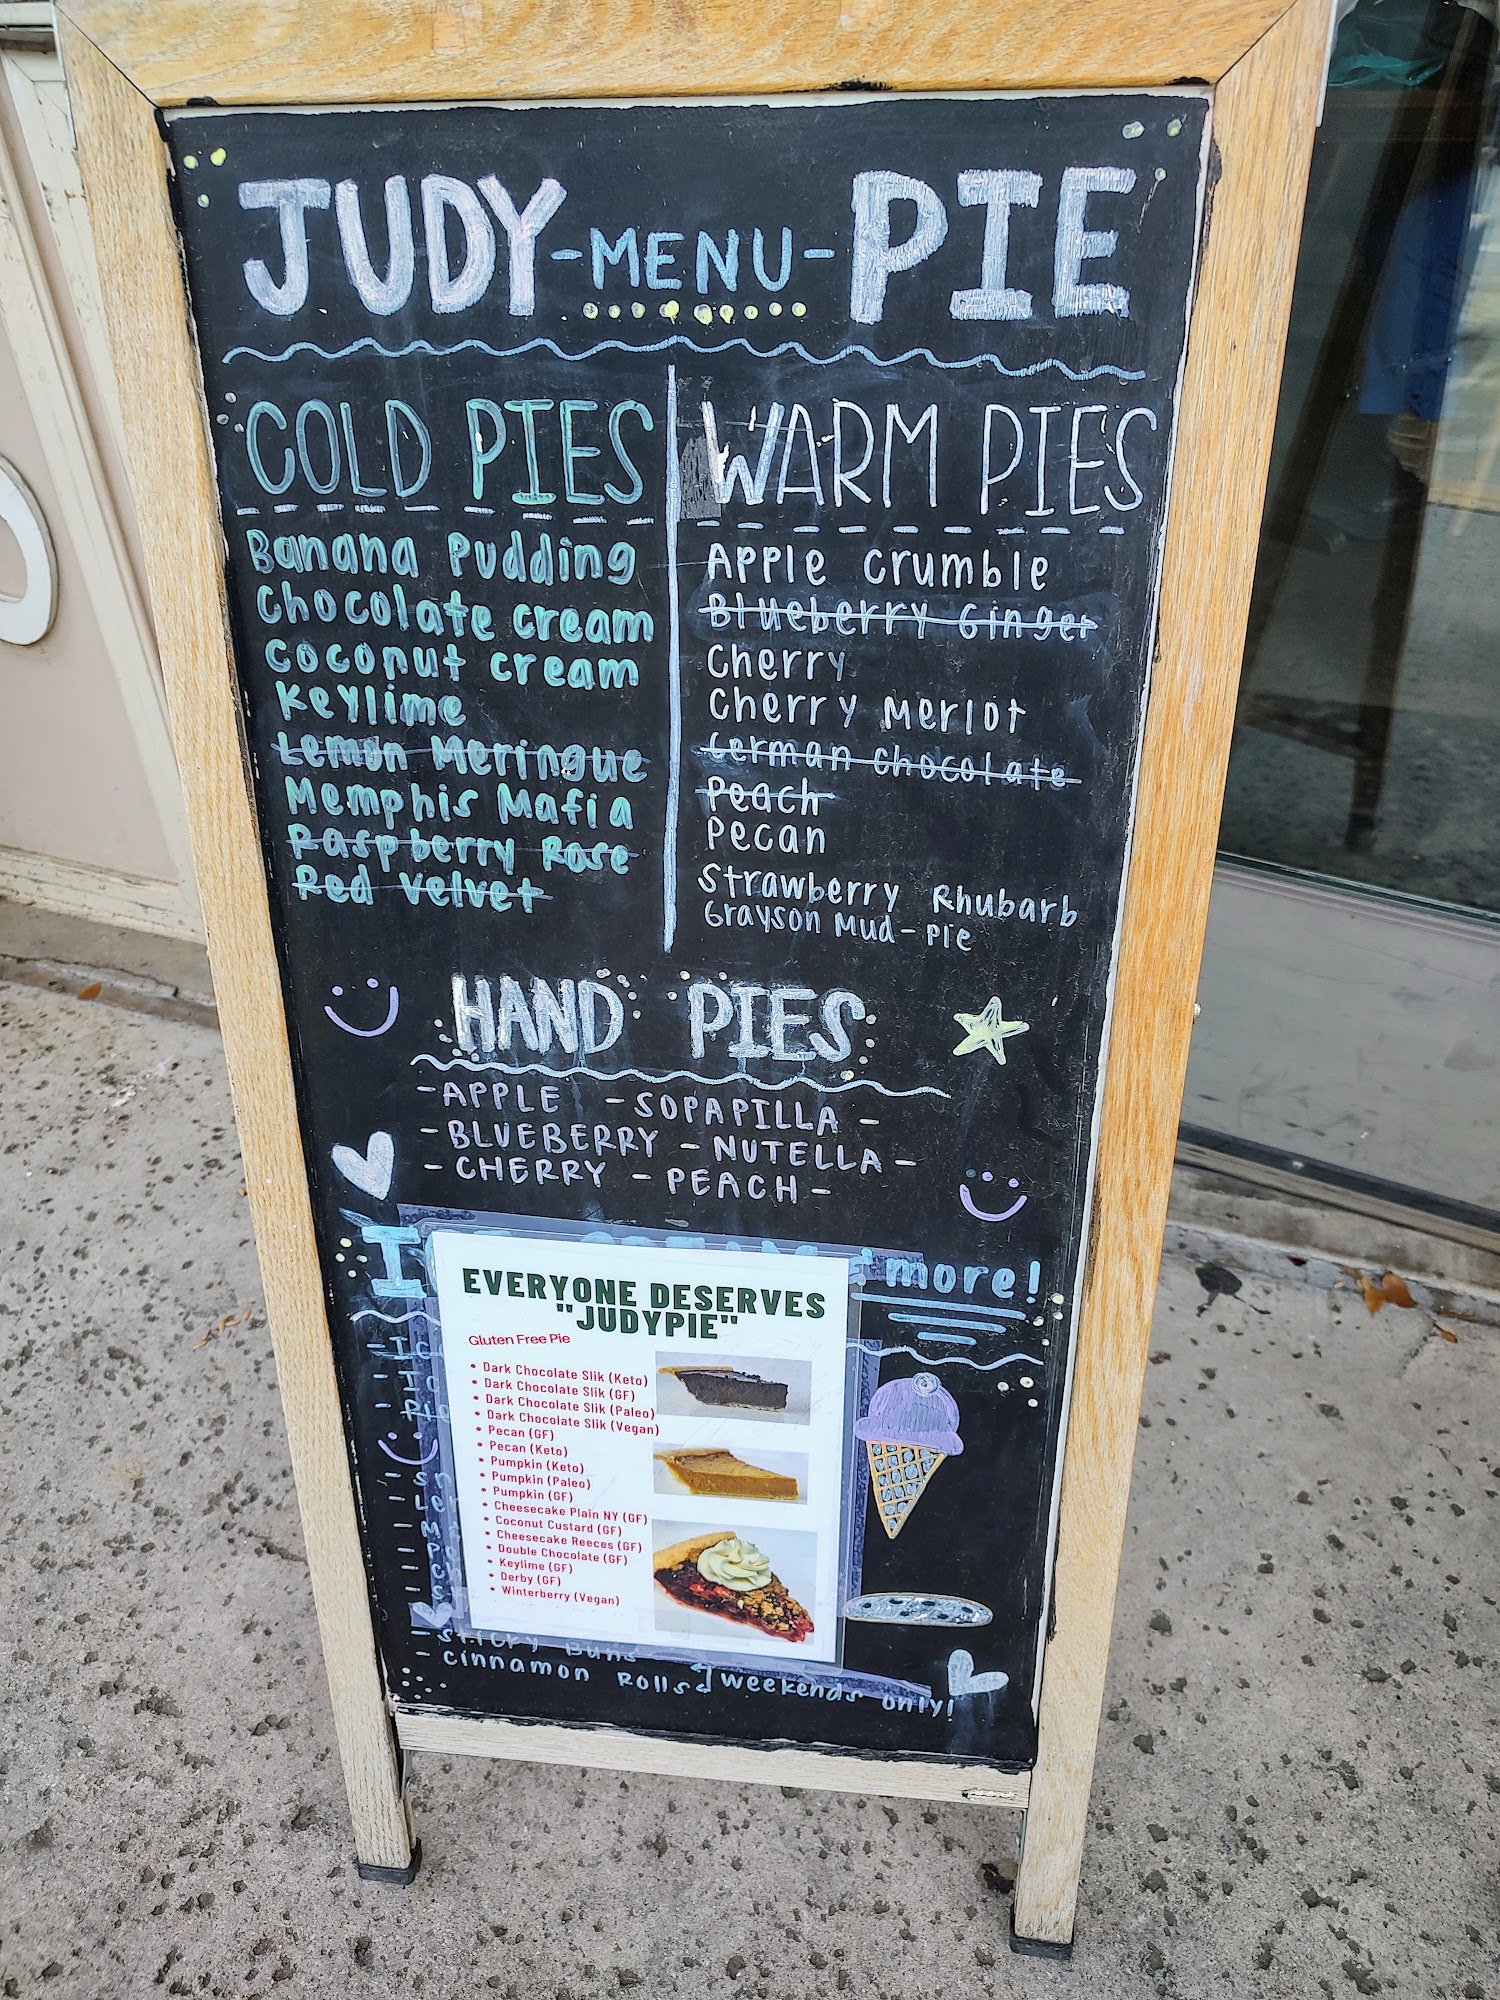 JUDY -MENU- PIE
COLD PIES
Banana Pudding
Chocolate cream
Coconut cream
Keylime
Lemon Meringue
Memphis Mafia
Raspberry Rose
Red Velvet
WARM PIES
Apple Crumble
Blueberry Ginger
Cherry
Cherry Merlot
German Chocolate
Peach
Pecan
Strawberry Rhubarb
Grayson Mud-Pie
HAND PIES
-APPLE -SOPAPILLA-
-BLUEBERRY -NUTELLA-
-CHERRY -PEACH-
more!
EVERYONE DESERVES
"JUDYPIE"
Gluten Free Pie
• Dark Chocolate Slik (Keto)
• Dark Chocolate Slik (GF)
• Dark Chocolate Slik (Paleo)
• Dark Chocolate Slik (Vegan)
• Pecan (GF)
• Pecan (Keto)
• Pumpkin (Keto)
• Pumpkin (Paleo)
• Pumpkin (GF)
• Cheesecake Plain NY (GF)
• Coconut Custard (GF)
• Cheesecake Reeces (GF)
• Double Chocolate (GF)
• Keylime (GF)
• Derby (GF)
• Winterberry (Vegan)
- Sticky Buns
- Cinnamon Rolls weekends only!